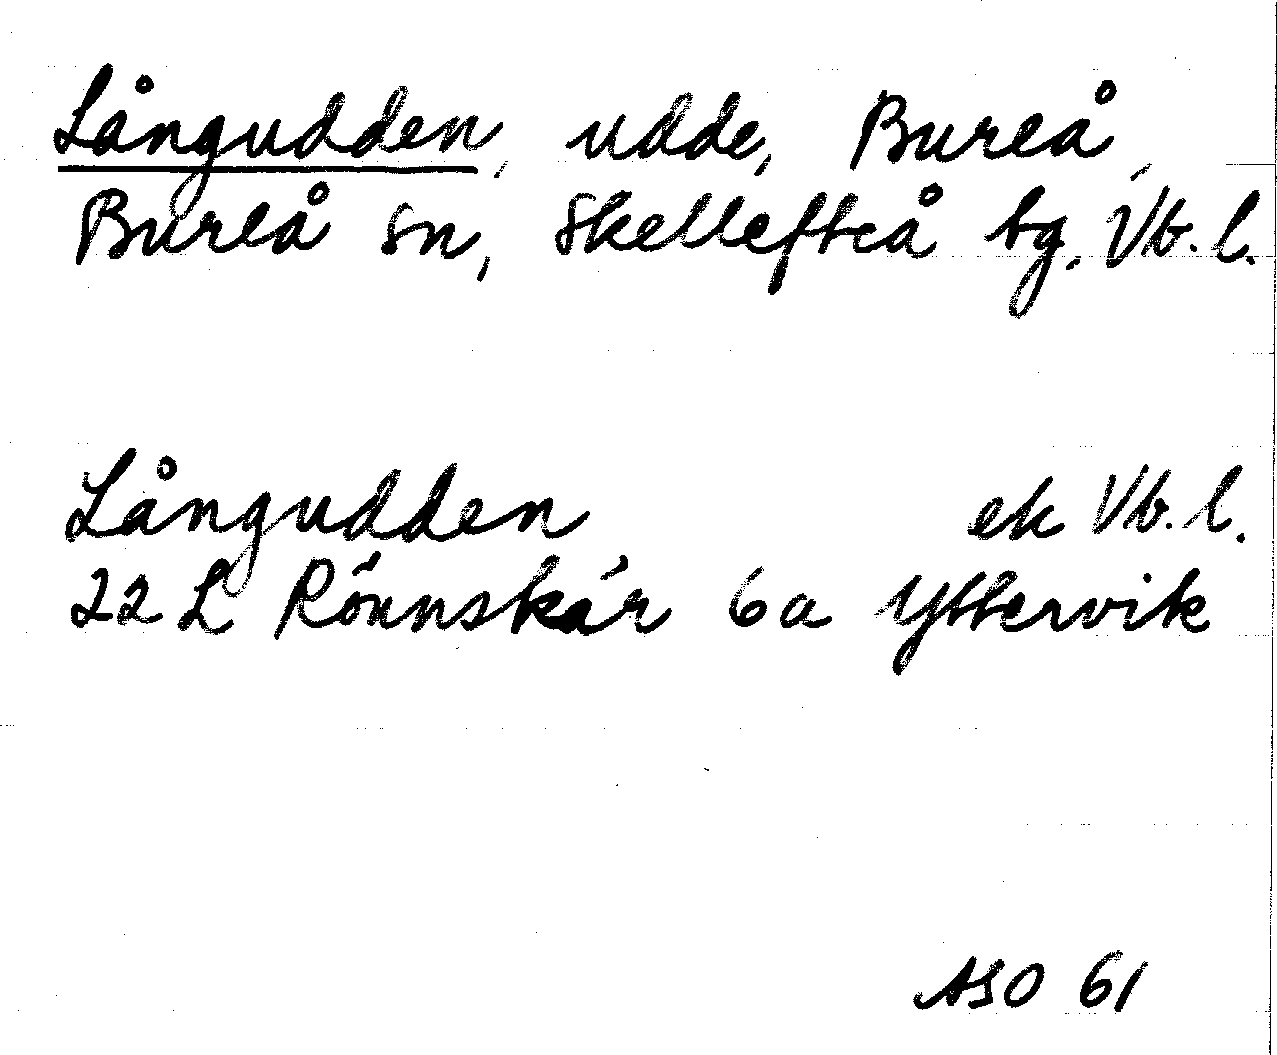 Långudden, udde, Bureå,
Bureå sn, Skellefteå tg, Vb. l.
Långudden ek Vb. l.
22 L Rönnskär 6a Yttervik
ASO 61